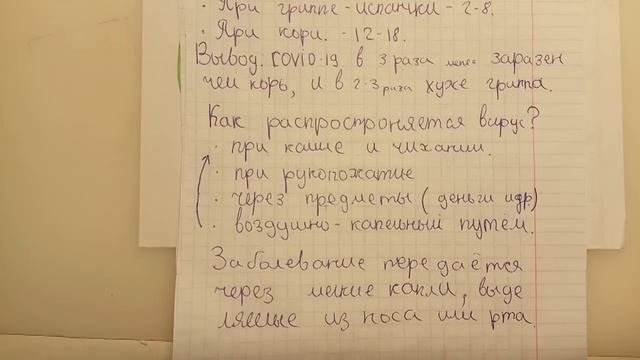 · При гриппе-испанки - 2-8.
· При кори. - 12-18.
Вывод: COVID-19 в 3 раза менее заразен
чем корь, и в 2-3 раза хуже гриппа.
Как распростроняется вирус?
· при кашле и чихании.
· при рукопожатие
· через предметы (деньги идр)
· воздушно-капельный путем.
Заболевание передаётся
через мелкие капли, выде
ляемые из носа или рта.